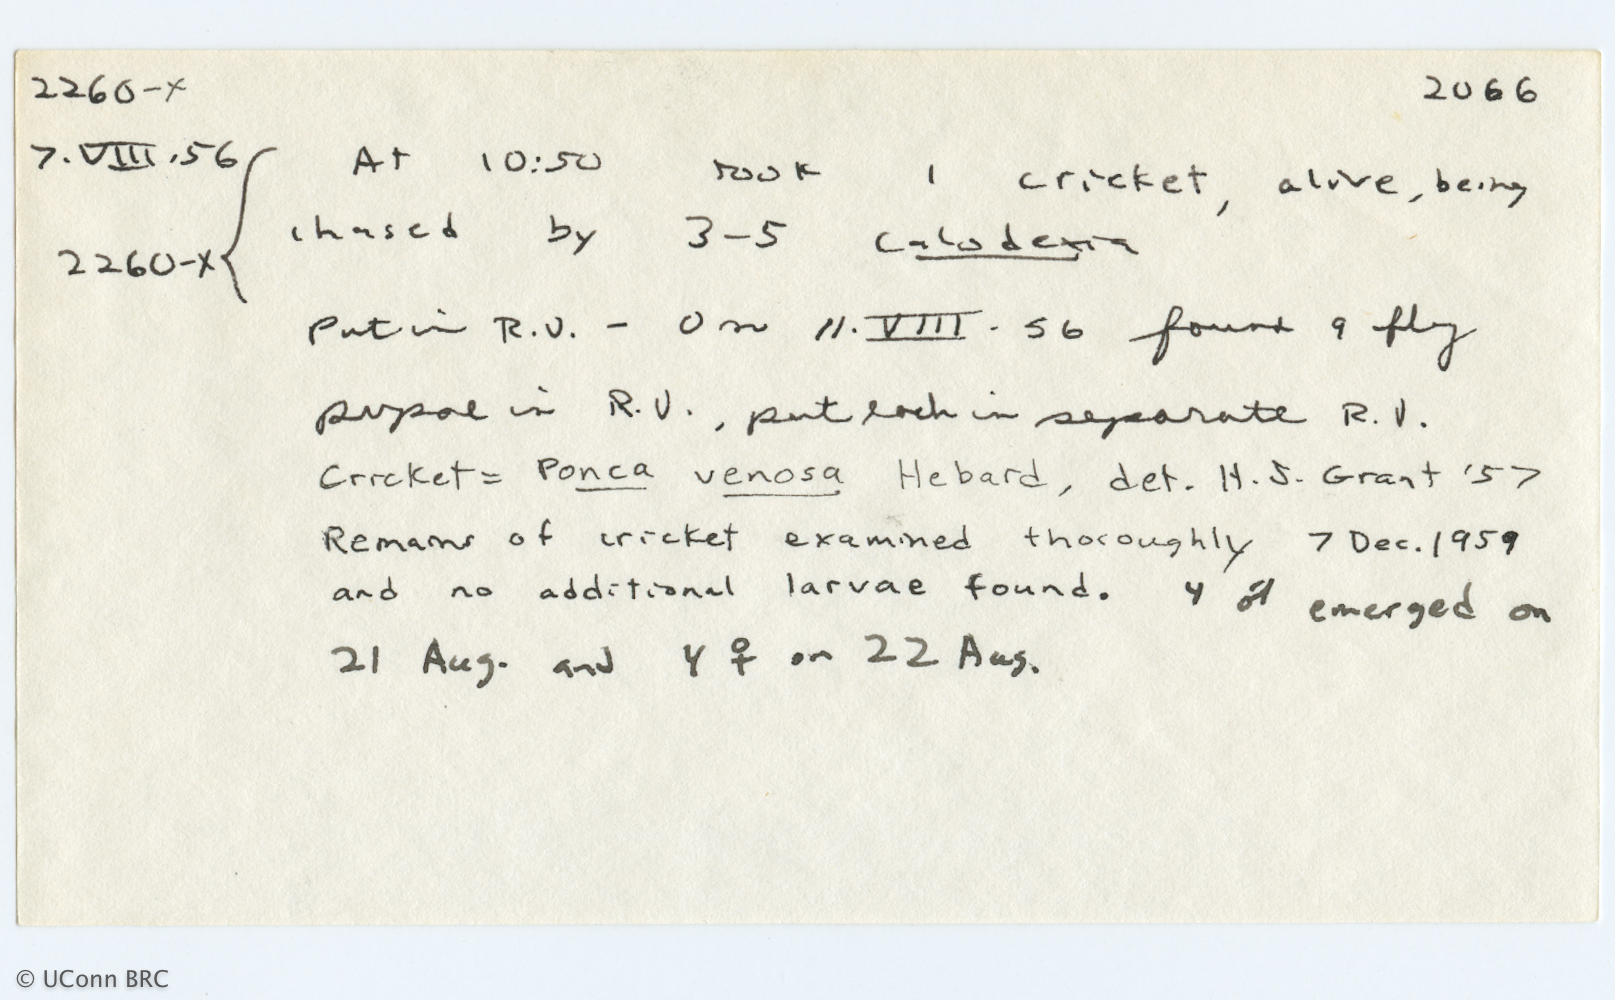 2260-x 2066
7.VIII.56 At 10:50 took 1 cricket, alive, being
chased by 3-5 Calodexia
2260-x
Put in R.V. - On 11.VIII.56 found 9 fly
pupae in R.V., put each in separate R.V.
Cricket = Ponca venosa Hebard, det. H.J. Grant '57
Remains of cricket examined thoroughly 7 Dec. 1959
and no additional larvae found. 4 ♂ emerged on
21 Aug. and 4 ♀ on 22 Aug.
© UConn BRC